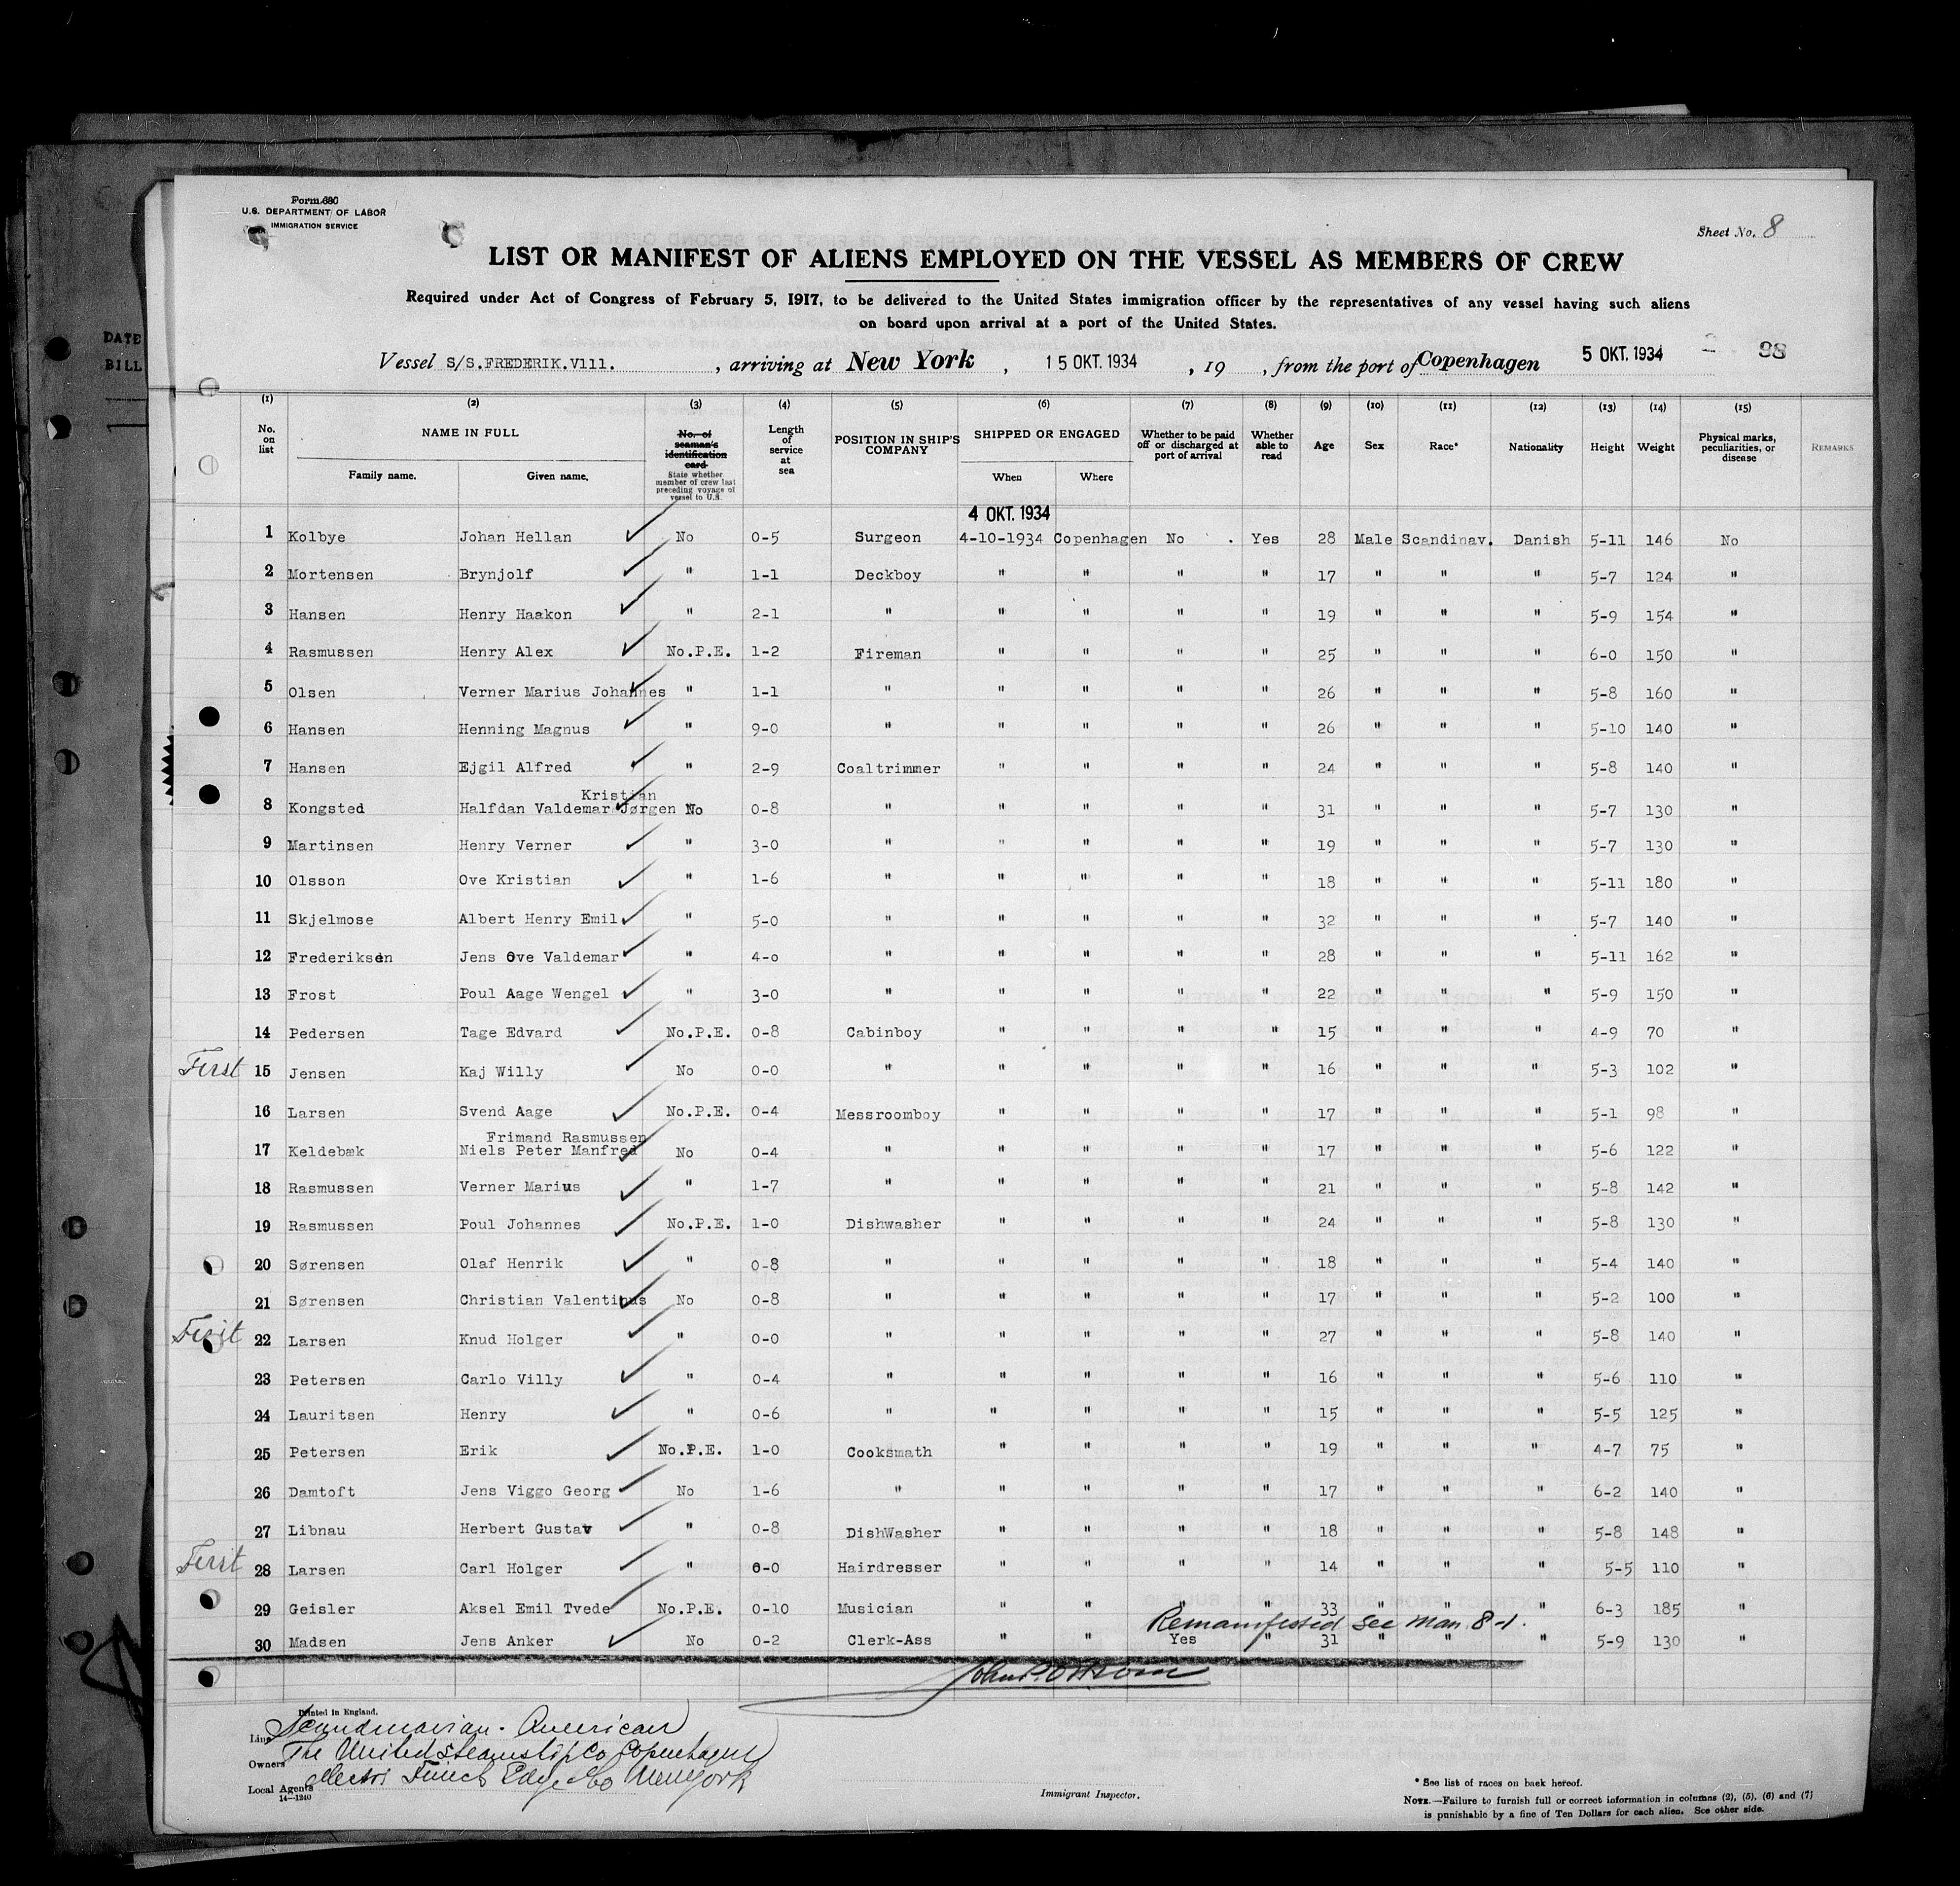 Form 680
U.S. DEPARTMENT OF LABOR
IMMIGRATION SERVICE
Sheet No. 8
LIST OR MANIFEST OF ALIENS EMPLOYED ON THE VESSEL AS MEMBERS OF CREW
Required under Act of Congress of February 5, 1917, to be delivered to the United States immigration officer by the representatives of any vessel having such aliens
on board upon arrival at a port of the United States.
DATE
BILL
Vessel S/S.FREDERIK.V111. , arriving at New York , 15 OKT. 1934 , 19 , from the port of Copenhagen 5 OKT. 1934 98
(1) (2) (3) (4) (5) (6) (7) (8) (9) (10) (11) (12) (13) (14) (15)
No. on list NAME IN FULL Family name. Given name. No. of seaman's identification card State whether member of crew last preceding voyage of vessel to U.S. Length of service at sea POSITION IN SHIP'S COMPANY SHIPPED OR ENGAGED When Where Whether to be paid off or discharged at port of arrival Whether able to read Age Sex Race* Nationality Height Weight Physical marks, peculiarities, or disease REMARKS
4 OKT. 1934
1 Kolbye Johan Hellan No 0-5 Surgeon 4-10-1934 Copenhagen No . Yes 28 Male Scandinav. Danish 5-11 146 No
2 Mortensen Brynjolf " 1-1 Deckboy " " " " 17 " " " 5-7 124 "
3 Hansen Henry Haakon " 2-1 " " " " " 19 " " " 5-9 154 "
4 Rasmussen Henry Alex No.P.E. 1-2 Fireman " " " " 25 " " " 6-0 150 "
5 Olsen Verner Marius Johannes " 1-1 " " " " " 26 " " " 5-8 160 "
6 Hansen Henning Magnus " 9-0 " " " " " 26 " " " 5-10 140 "
7 Hansen Ejgil Alfred " 2-9 Coaltrimmer " " " " 24 " " " 5-8 140 "
Kristian
8 Kongsted Halfdan Valdemar Jørgen No 0-8 " " " " " 31 " " " 5-7 130 "
9 Martinsen Henry Verner " 3-0 " " " " " 19 " " " 5-7 130 "
10 Olsson Ove Kristian " 1-6 " " " " " 18 " " " 5-11 180 "
11 Skjelmose Albert Henry Emil " 5-0 " " " " " 32 " " " 5-7 140 "
12 Frederiksen Jens Ove Valdemar " 4-o " " " " " 28 " " " 5-11 162 "
13 Frost Poul Aage Wengel " 3-0 " " " " " 22 " " " 5-9 150 "
14 Pedersen Tage Edvard No.P.E. 0-8 Cabinboy " " " " 15 " " " 4-9 70 "
First 15 Jensen Kaj Willy No 0-0 " " " " " 16 " " " 5-3 102 "
16 Larsen Svend Aage No.P.E. 0-4 Messroomboy " " " " 17 " " " 5-1 98 "
Frimand Rasmussen
17 Keldebæk Niels Peter Manfred No 0-4 " " " " " 17 " " " 5-6 122 "
18 Rasmussen Verner Marius " 1-7 " " " " " 21 " " " 5-8 142 "
19 Rasmussen Poul Johannes No.P.E. 1-0 Dishwasher " " " " 24 " " " 5-8 130 "
20 Sørensen Olaf Henrik " 0-8 " " " " " 18 " " " 5-4 140 "
21 Sørensen Christian Valentinus No 0-8 " " " " " 17 " " " 5-2 100 "
First 22 Larsen Knud Holger " 0-0 " " " " " 27 " " " 5-8 140 "
23 Petersen Carlo Villy " 0-4 " " " " " 16 " " " 5-6 110 "
24 Lauritsen Henry " 0-6 " " " " " 15 " " " 5-5 125 "
25 Petersen Erik No.P.E. 1-0 Cooksmath " " " " 19 " " " 4-7 75 "
26 Damtoft Jens Viggo Georg No 1-6 " " " " " 17 " " " 6-2 140 "
27 Libnau Herbert Gustav " 0-8 DishWasher " " " " 18 " " " 5-8 148 "
First 28 Larsen Carl Holger " 0-0 Hairdresser " " " " 14 " " " 5-5 110 "
29 Geisler Aksel Emil Tvede No.P.E. 0-10 Musician " " " " 33 " " " 6-3 185 "
Remanifested See Man 8-1.
30 Madsen Jens Anker No 0-2 Clerk-Ass " " Yes " 31 " " " 5-9 130 "
Printed in England.
Line Scandinavian-American
Owners The United Steamship Co Copenhagen
Local Agents Funch Edye & Co New York
14—1240
Immigrant Inspector.
* See list of races on back hereof.
NOTE.—Failure to furnish full or correct information in columns (2), (5), (6) and (7)
is punishable by a fine of Ten Dollars for each alien. See other side.